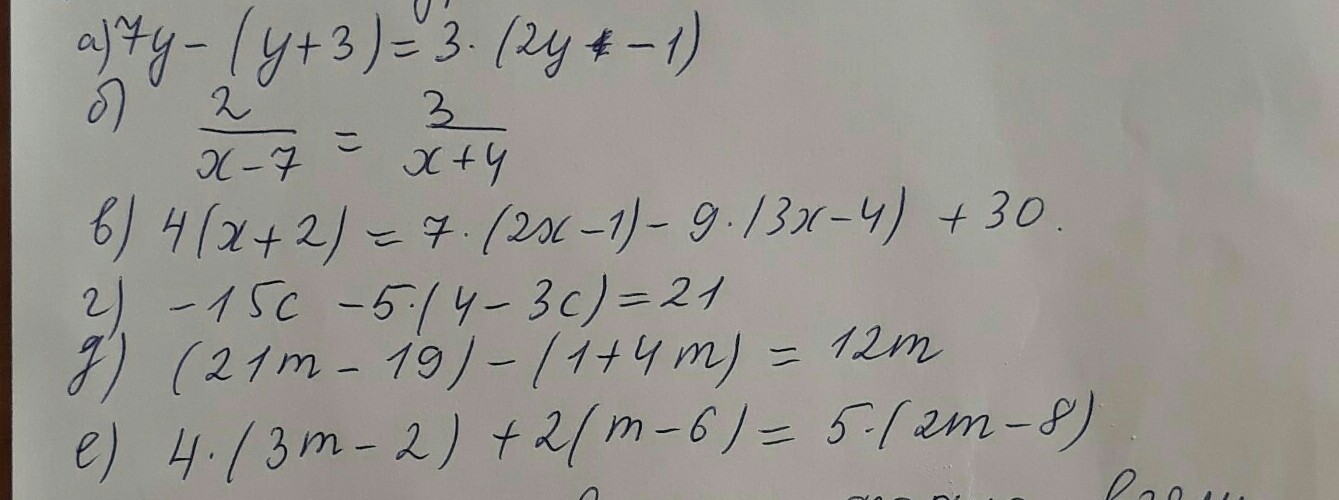 а) 7y - (y+3) = 3 · (2y - 1)
б) 2/(x-7) = 3/(x+4)
в) 4(x+2) = 7 · (2x-1) - 9 · (3x-4) + 30.
г) -15c - 5 · (4-3c) = 21
д) (21m - 19) - (1+4m) = 12m
е) 4 · (3m-2) + 2(m-6) = 5 · (2m-8)